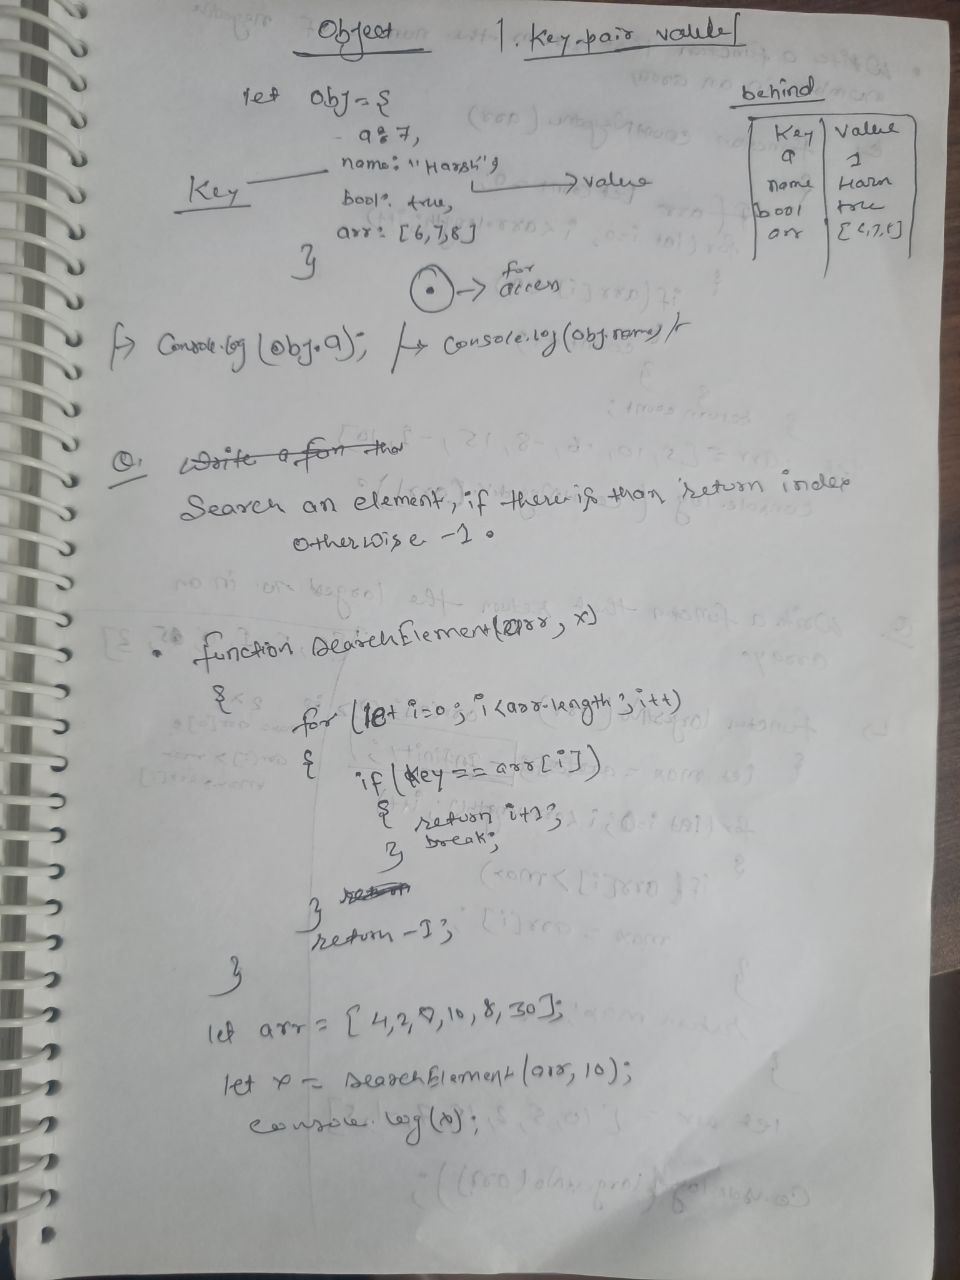 Object 1. Key-pair value
let obj = {
a: 7,
name: "Harsh",
bool: true,
arr: [6,7,8]
}
Key
→ value
behind
Key value
a 1
name Harsh
bool true
arr [6,7,8]
→ for access
→ Console.log(obj.a); → console.log(obj.name)
Q. Write a fon that
Search an element, if there is than return index
otherwise -1.
• function searchElement(arr, x)
{
for (let i=0; i<arr.length; i++)
{
if (key == arr[i])
{ return i+1;
break;
}
} return
return -1;
}
let arr = [4,2,0,10,8,30];
let x = searchElement(arr, 10);
console.log(x);